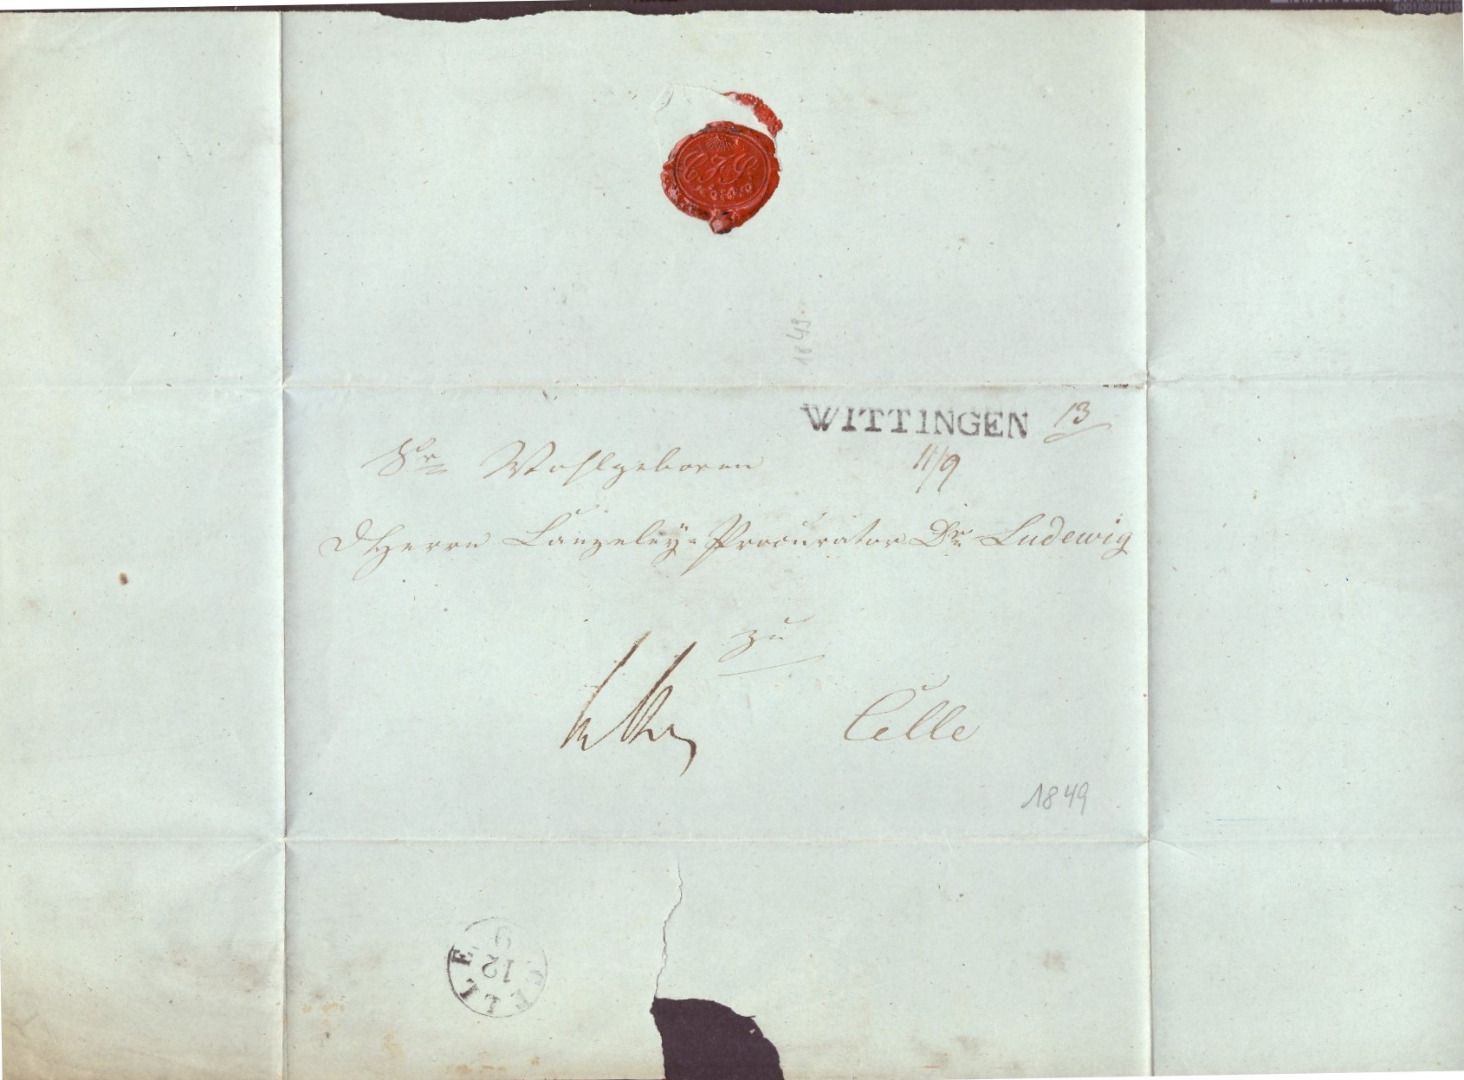 1849
WITTINGEN 13
11/9
Sr Wohlgeboren
Herrn Canzeley-Procurator Dr. Ludewig
zu
Celle
1849
CELLE
12
9